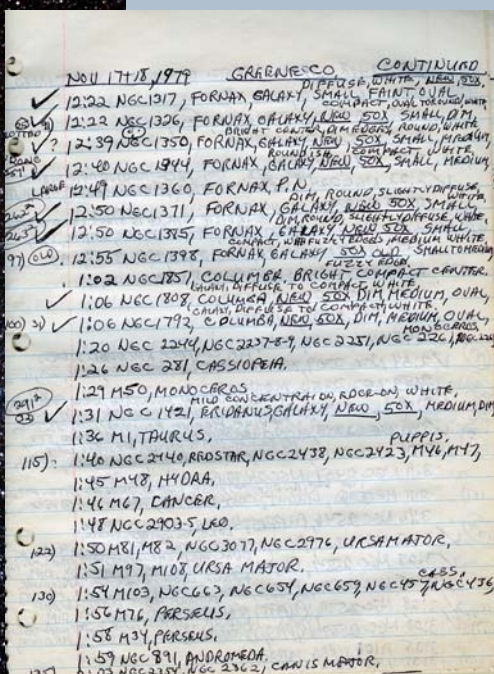 NOV 17+18, 1979 GREENE CO. CONTINUED
DIFFUSE, WHITE, NEW, 50X.
12:22 NGC1317, FORNAX, GALAXY, SMALL, FAINT, OVAL
COMPACT, OVAL TO ROUND, WHITE
12:22 NGC1326, FORNAX GALAXY, NEW 50X, SMALL, DIM,
BRIGHT CENTER, DIM EDGES, ROUND, WHITE
? 12:39 NGC1350, FORNAX, GALAXY, NEW 50X, SMALL, MEDIUM,
ROUNDISH, COMPACT, WHITE
12:40 NGC 1344, FORNAX, GALAXY, NEW, 50X, SMALL, MEDIUM
LARGE 12:49 NGC1360, FORNAX, P.N.
DIM, ROUND, SLIGHTLY DIFFUSE, WHITE,
262 12:50 NGC1371, FORNAX, GALAXY, NEW 50X, SMALL
DIM, ROUND, SLIGHTLY DIFFUSE, WHITE,
263 12:50 NGC1385, FORNAX, GALAXY NEW 50X, SMALL
COMPACT, WITH FUZZY EDGES, MEDIUM WHITE,
97) OLD 12:55 NGC1398, FORNAX GALAXY, 50X OLD, SMALL TO MEDIUM
FUZZY EDGES,
1:02 NGC1851, COLUMBA BRIGHT COMPACT CENTER.
GALAXY, DIFFUSE TO COMPACT, WHITE
1:06 NGC1808, COLUMBA, NEW, 50X DIM MEDIUM, OVAL,
GALAXY, DIFFUSE TO COMPACT, WHITE.
100) 1:06 NGC1792, COLUMBA, NEW, 50X, DIM, MEDIUM, OVAL,
MONOCEROS
1:20 NGC 2244, NGC2237-8-9, NGC 2251, NGC 2261,
1:26 NGC 281, CASSIOPEIA.
1:29 M50, MONOCEROS
MILD CONCENTRATION, EDGE-ON, WHITE.
1:31 NGC 1421, ERIDANUS, GALAXY, NEW, 50X, MEDIUM, DIM
1:36 M1, TAURUS.
PUPPIS,
115) 1:40 NGC2440, RED STAR, NGC2438, NGC2423, M46, M47,
1:45 M48, HYDRA.
1:46 M67, CANCER.
1:48 NGC 2903-5, LEO.
122) 1:50 M81, M82, NGC3077, NGC2976, URSA MAJOR.
1:51 M97, M108, URSA MAJOR.
CASS.
130) 1:54 M103, NGC663, NGC654, NGC659, NGC457, NGC436,
1:56 M76, PERSEUS,
1:58 M34, PERSEUS,
1:59 NGC 891, ANDROMEDA.
NGC2354, NGC 2362, CANIS MAJOR,